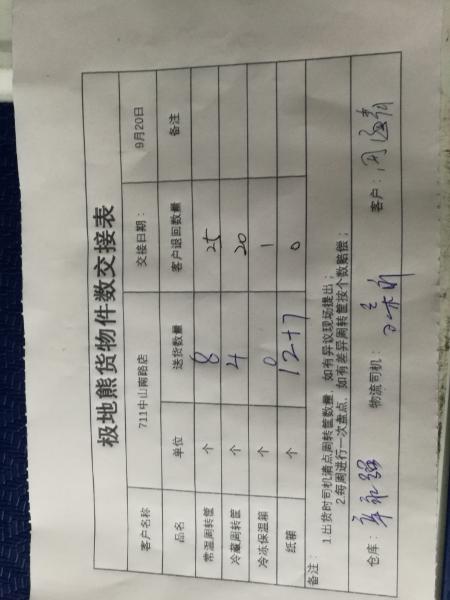 极地熊货物件数交接表
客户名称 711中山南路店 交接日期： 9月20日
品名 单位 送货数量 客户退回数量 备注
常温周转筐 个 8 25
冷藏周转筐 个 4 20
冷冻保温箱 个 0 1
纸箱 个 12+7 0
备注：
1.出货时司机清点周转筐数量，如有异议现场提出；
2.每周进行一次盘点，如有差异周转筐按个数赔偿；
仓库： 物流司机： 客户：